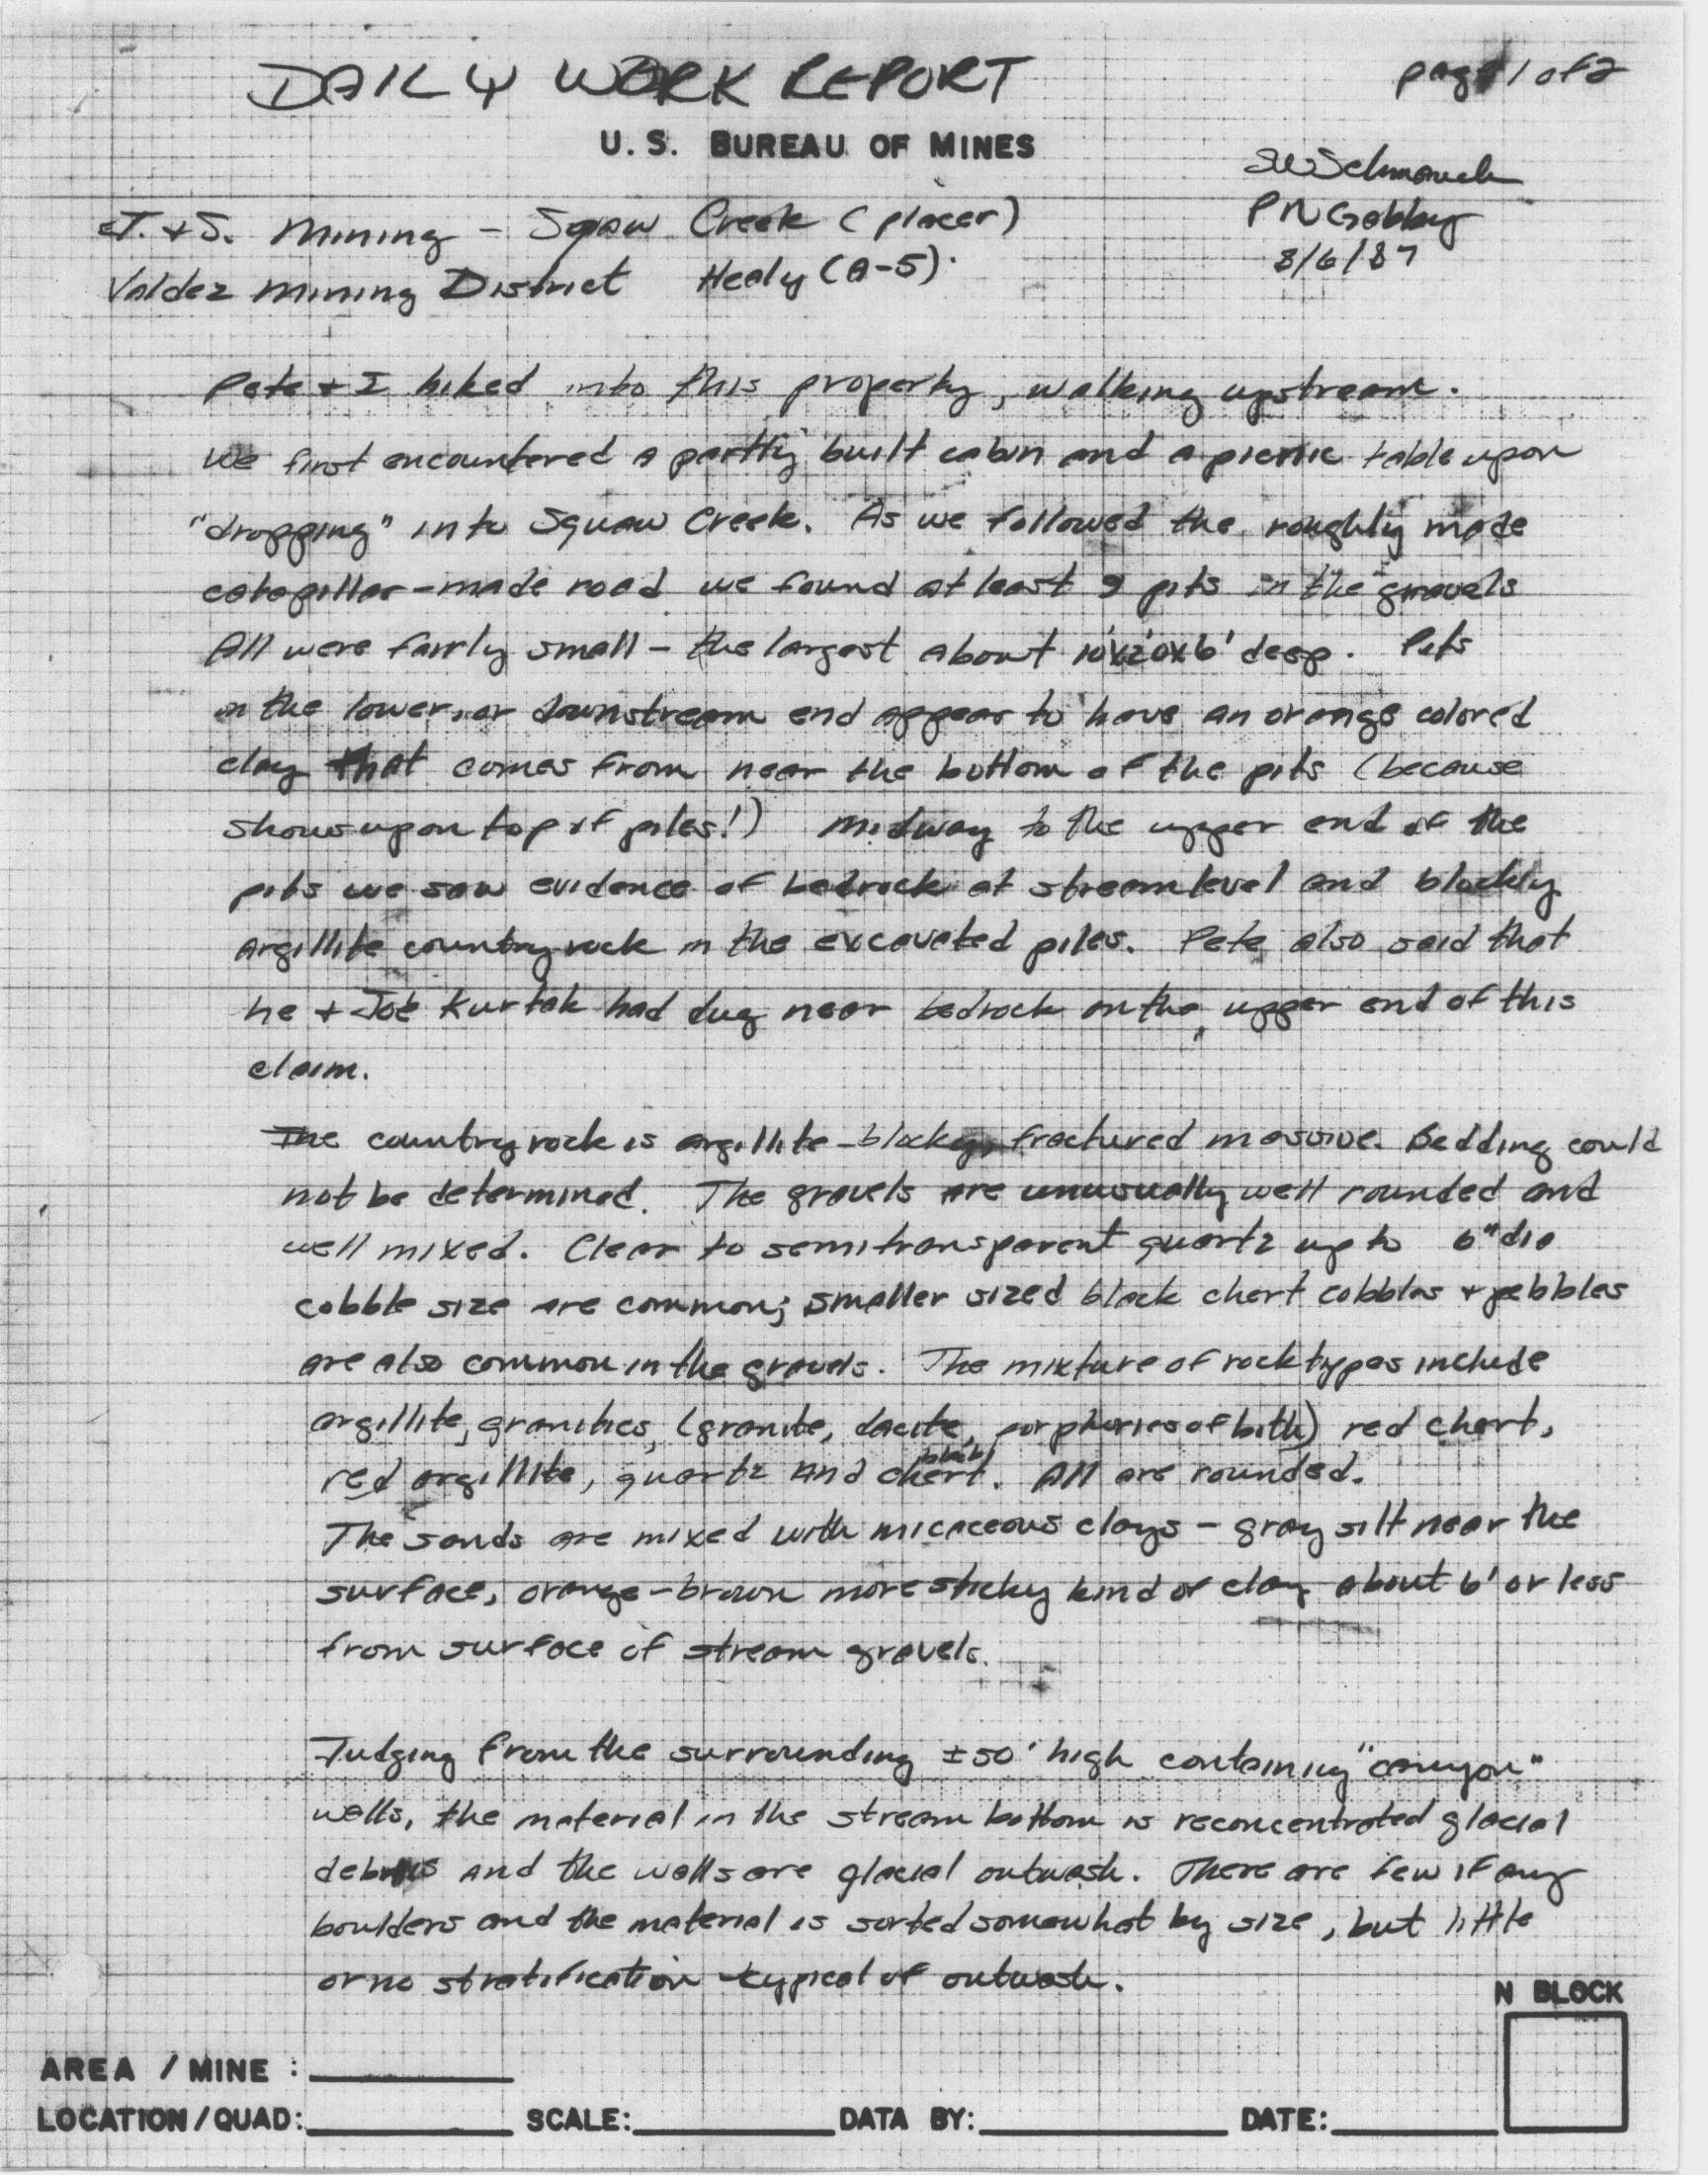 DAILY WORK REPORT
page 1 of 2
U.S. BUREAU OF MINES
SWSchmauch
PNGabby
8/6/87
J. & S. Mining - Squaw Creek (placer)
Valdez Mining District Healy (A-5).
Pete + I hiked into this property, walking upstream.
We first encountered a partly built cabin and a picnic table upon
"dropping" into Squaw Creek. As we followed the roughly made
catapillar-made road we found at least 9 pits in the gravels
All were fairly small - the largest about 10'x20'x6' deep. Pits
in the lower, or downstream end appear to have an orange colored
clay that comes from near the bottom of the pits (because
shows up on top of piles!) Midway to the upper end of the
pits we saw evidence of bedrock at stream level and blockly
argillite country rock in the excavated piles. Pete also said that
he + Joe Kurtak had dug near bedrock on the upper end of this
claim.
The country rock is argillite - blocky, fractured massive. Bedding could
not be determined. The gravels are unusually well rounded and
well mixed. Clear to semitransparent quartz up to 6" dia
cobble size are common; smaller sized black chert cobbles + pebbles
are also common in the gravels. The mixture of rock types include
argillite, granitics, (granite, dacite, porphyries of both) red chert,
red argillite, quartz and black chert. All are rounded.
The sands are mixed with micaceous clays - gray silt near the
surface, orange-brown more sticky kind of clay about 6' or less
from surface of stream gravels.
Judging from the surrounding ±50' high containing "canyon"
walls, the material in the stream bottom is reconcentrated glacial
debris and the walls are glacial outwash. There are few if any
boulders and the material is sorted somewhat by size, but little
or no stratification - typical of outwash.
N BLOCK
AREA / MINE :
LOCATION/QUAD: SCALE: DATA BY: DATE: